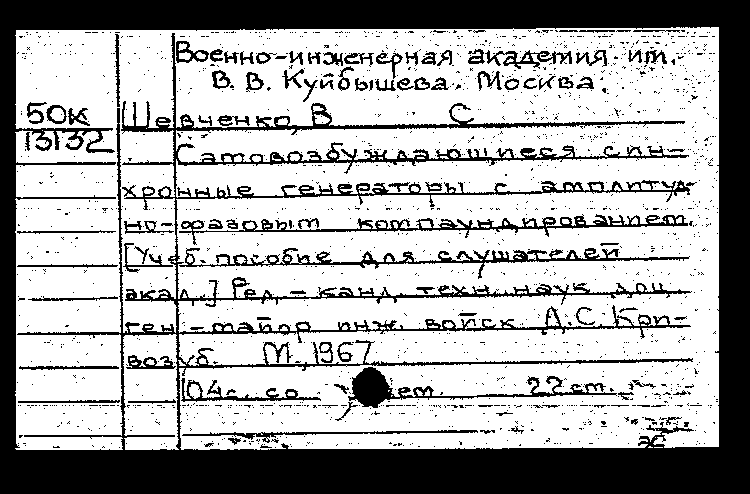 Военно-инженерная академия им.
В. В. Куйбышева. Москва.
50к
13132
Шевченко, В С
Самовозбуждающиеся син-
хронные генераторы с амплитуд
но-фазовым компаундированием.
[Учеб. пособие для слушателей
акад.] Ред. - канд. техн. наук доц.
ген-майор инж. войск Д. С. Кри-
возуб. М., 1967
104с. со 22 см.